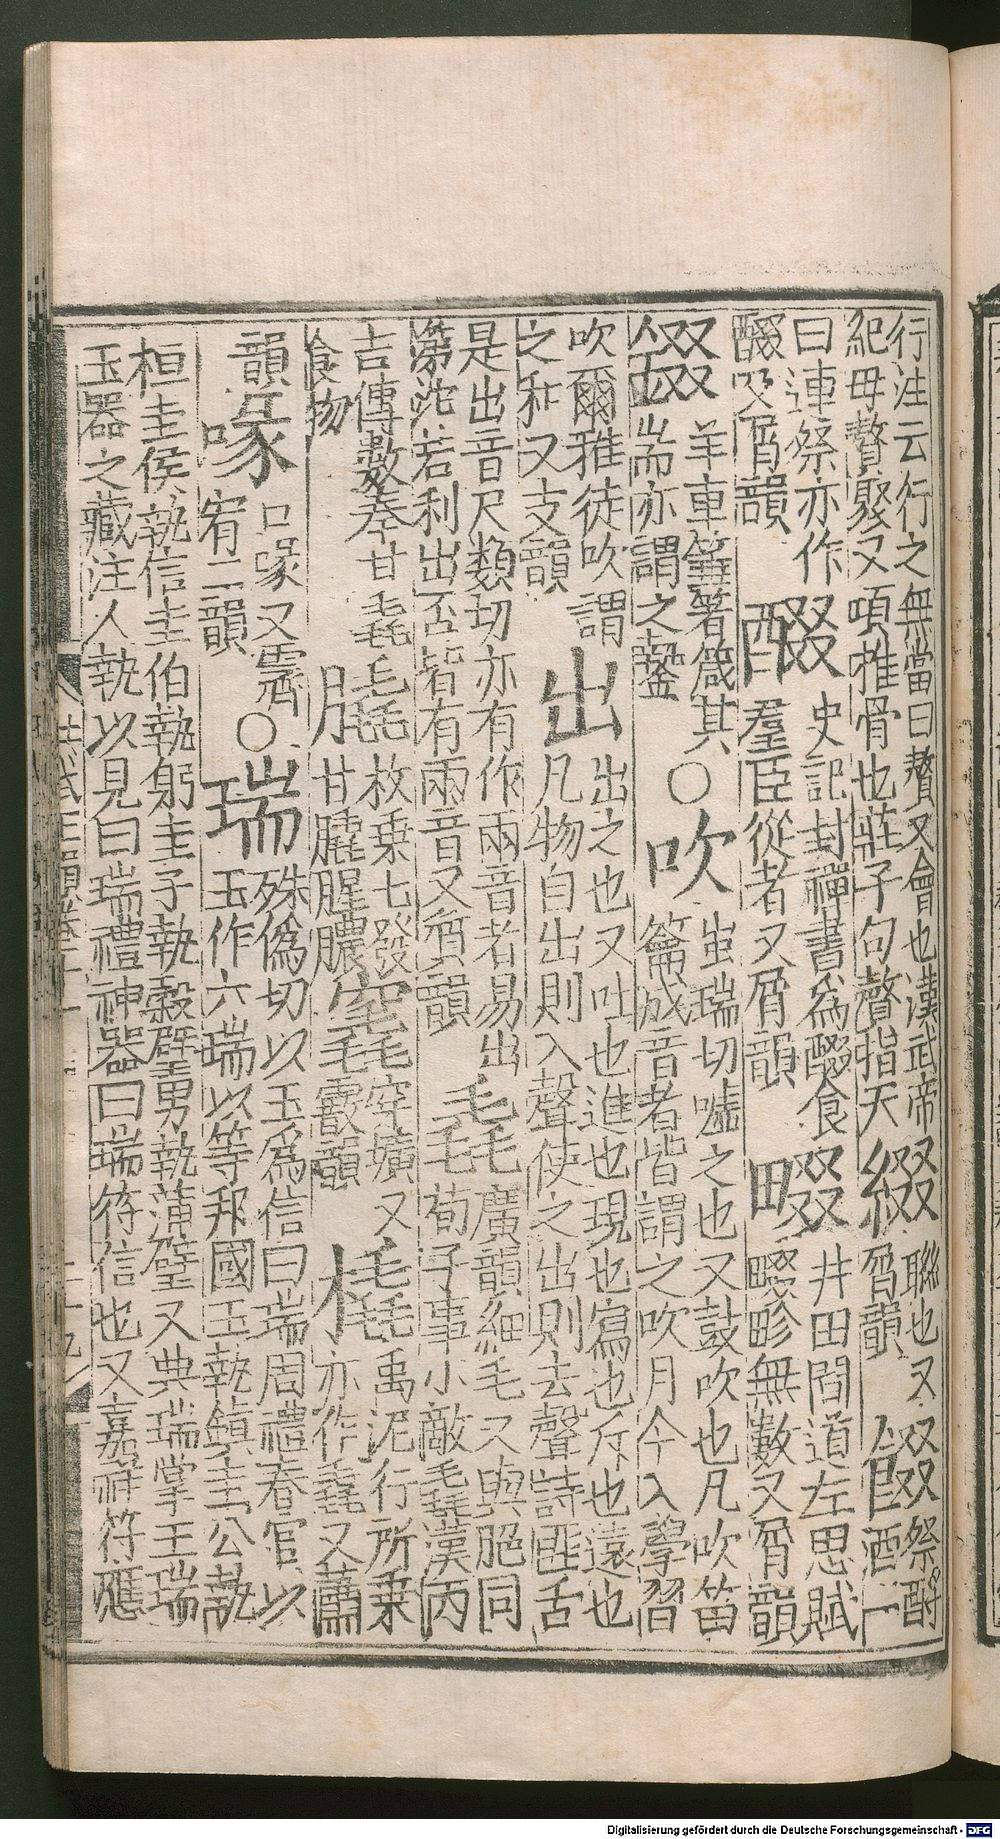 行注云行之無當曰贅又會也漢武帝
紀毋贅聚又項椎骨也莊子句贅指天
綴
聯也又
屑韻
餟
祭酹
酒一
曰連祭亦作
醊又屑韻
醊
史記封禪書為醊食
羣臣從者又屑韻
畷
井田間道左思賦
畷畛無數又屑韻
錣
羊車箠箸箴其
耑亦謂之
○吹
蚩瑞切噓之也又鼓吹也凡吹笛
籥成音者皆謂之吹月令入學習
吹爾雅徒吹謂
之和又支韻
出
出之也又吐也進也現也寫也斥也遠也
凡物自出則入聲使之出則去聲詩匪舌
是出音尺類切亦有作兩音者易出
涕沱若利出否皆有兩音又質韻
毳
廣韻細毛又與脃同
荀子事小敵毳漢丙
吉傳數奏甘毳
食物
膬
枚乗七發
甘膬腥膿
竁
穿壙又
霰韻
橇
禹泥行所乗
亦作毳又蕭
韻
喙
口喙又霽
宥二韻
○瑞
殊偽切以玉為信曰瑞周禮春官以
玉作六瑞以等邦國王執鎮圭公執
桓圭侯執信圭伯執躬圭子執穀璧男執蒲璧又典瑞掌王瑞
玉器之藏注人執以見曰瑞禮神器曰瑞符信也又嘉祥符應
Digitalisierung gefördert durch die Deutsche Forschungsgemeinschaft - DFG